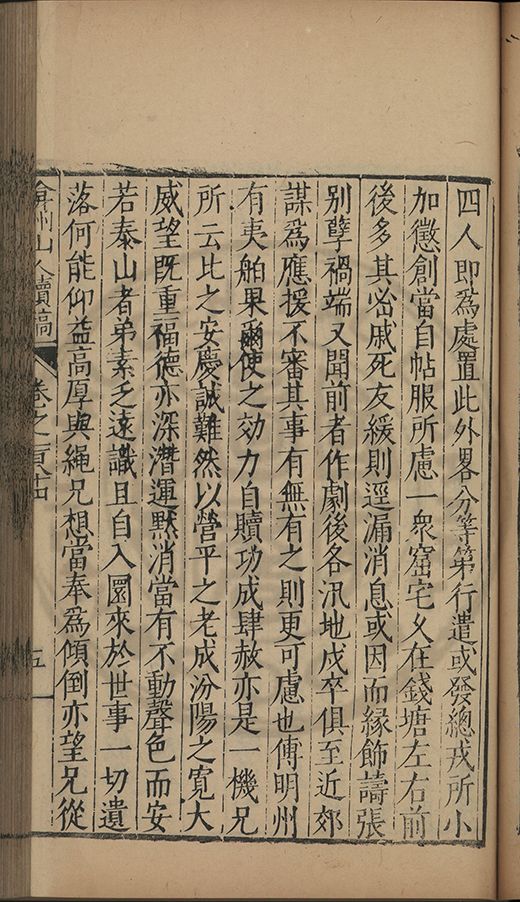 四人即爲處置此外畧分等第行遣或發總戎所小
加懲創當自帖服所慮一衆窟宅久在錢塘左右前
後多其密戚死友緩則逕漏消息或因而緣飾譸張
别孽禍端又聞前者作劇後各汛地戍卒俱至近郊
謀爲應援不審其事有無有之則更可慮也傳明州
有夷舶果爾使之効力自贖功成肆赦亦是一機兄
所云比之安慶誠難然以營平之老成汾陽之寛大
威望既重福德亦深潛運黙消當有不動聲色而安
若泰山者弟素乏遠識且自入園來於世事一切遺
落何能仰益高厚與繩兄想當奉爲傾倒亦望兄從
弇州山人續稿 卷之 五